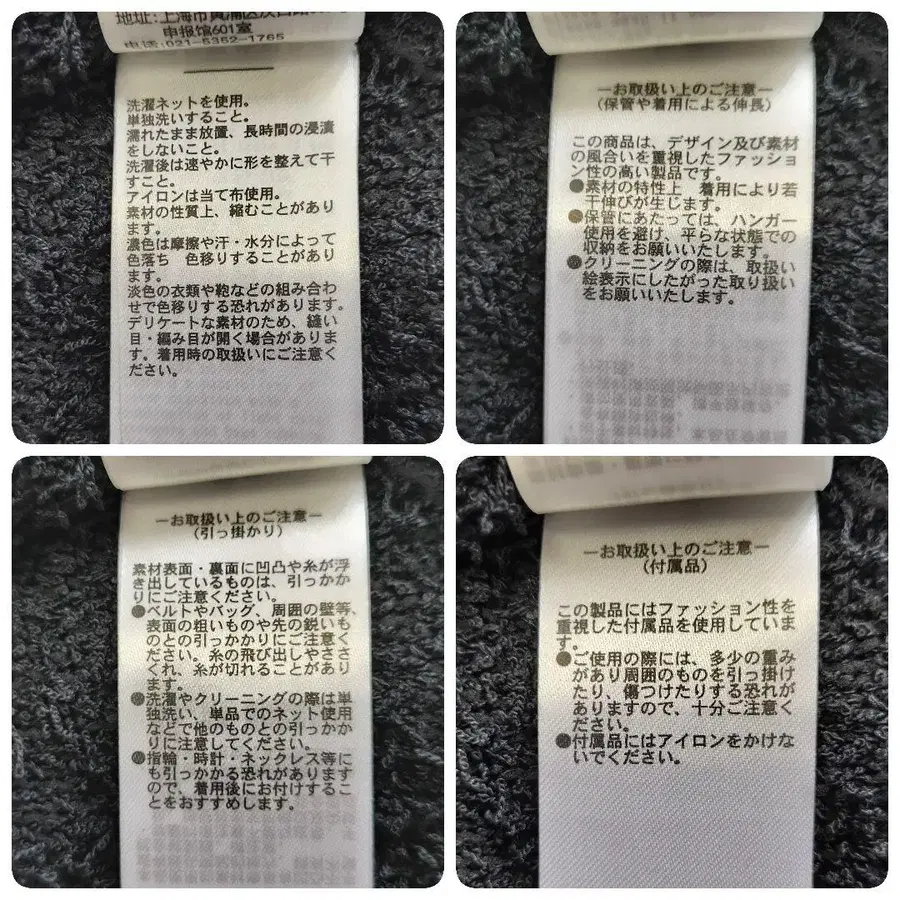 地址:上海市黄浦区汉口路
申报馆601室
电话:021-5352-1765
洗濯ネットを使用。
単独洗いすること。
濡れたまま放置、長時間の浸漬
をしないこと。
洗濯後は速やかに形を整えて干
すこと。
アイロンは当て布使用。
素材の性質上、縮むことがあり
ます。
濃色は摩擦や汗・水分によって
色落ち 色移りすることがあり
ます。
淡色の衣類や鞄などの組み合わ
せで色移りする恐れがあります。
デリケートな素材のため、縫い
目・編み目が開く場合がありま
す。着用時の取扱いにご注意く
ださい。
―お取扱い上のご注意―
(保管や着用による伸長)
この商品は、デザイン及び素材
の風合いを重視したファッショ
ン性の高い製品です。
●素材の特性上 着用により若
干伸びが生じます。
●保管にあたっては、ハンガー
使用を避け、平らな状態での
収納をお願いいたします。
●クリーニングの際は、取扱い
絵表示にしたがった取り扱い
をお願いいたします。
―お取扱い上のご注意―
(引っ掛かり)
素材表面・裏面に凹凸や糸が浮
き出しているものは、引っかか
りにご注意ください。
●ベルトやバッグ、周囲の壁等、
表面の粗いものや先の鋭いも
のとの引っかかりにご注意く
ださい。糸の飛び出しやささ
くれ、糸が切れることがあり
ます。
●洗濯やクリーニングの際は単
独洗い、単品でのネット使用
などで他のものとの引っかか
りに注意してください。
●指輪・時計・ネックレス等に
も引っかかる恐れがあります
ので、着用後にお付けするこ
とをおすすめします。
―お取扱い上のご注意―
(付属品)
この製品にはファッション性を
重視した付属品を使用していま
す。
●ご使用の際には、多少の重み
があり周囲のものを引っ掛け
たり、傷つけたりする恐れが
ありますので、十分ご注意く
ださい。
●付属品にはアイロンをかけな
いでください。